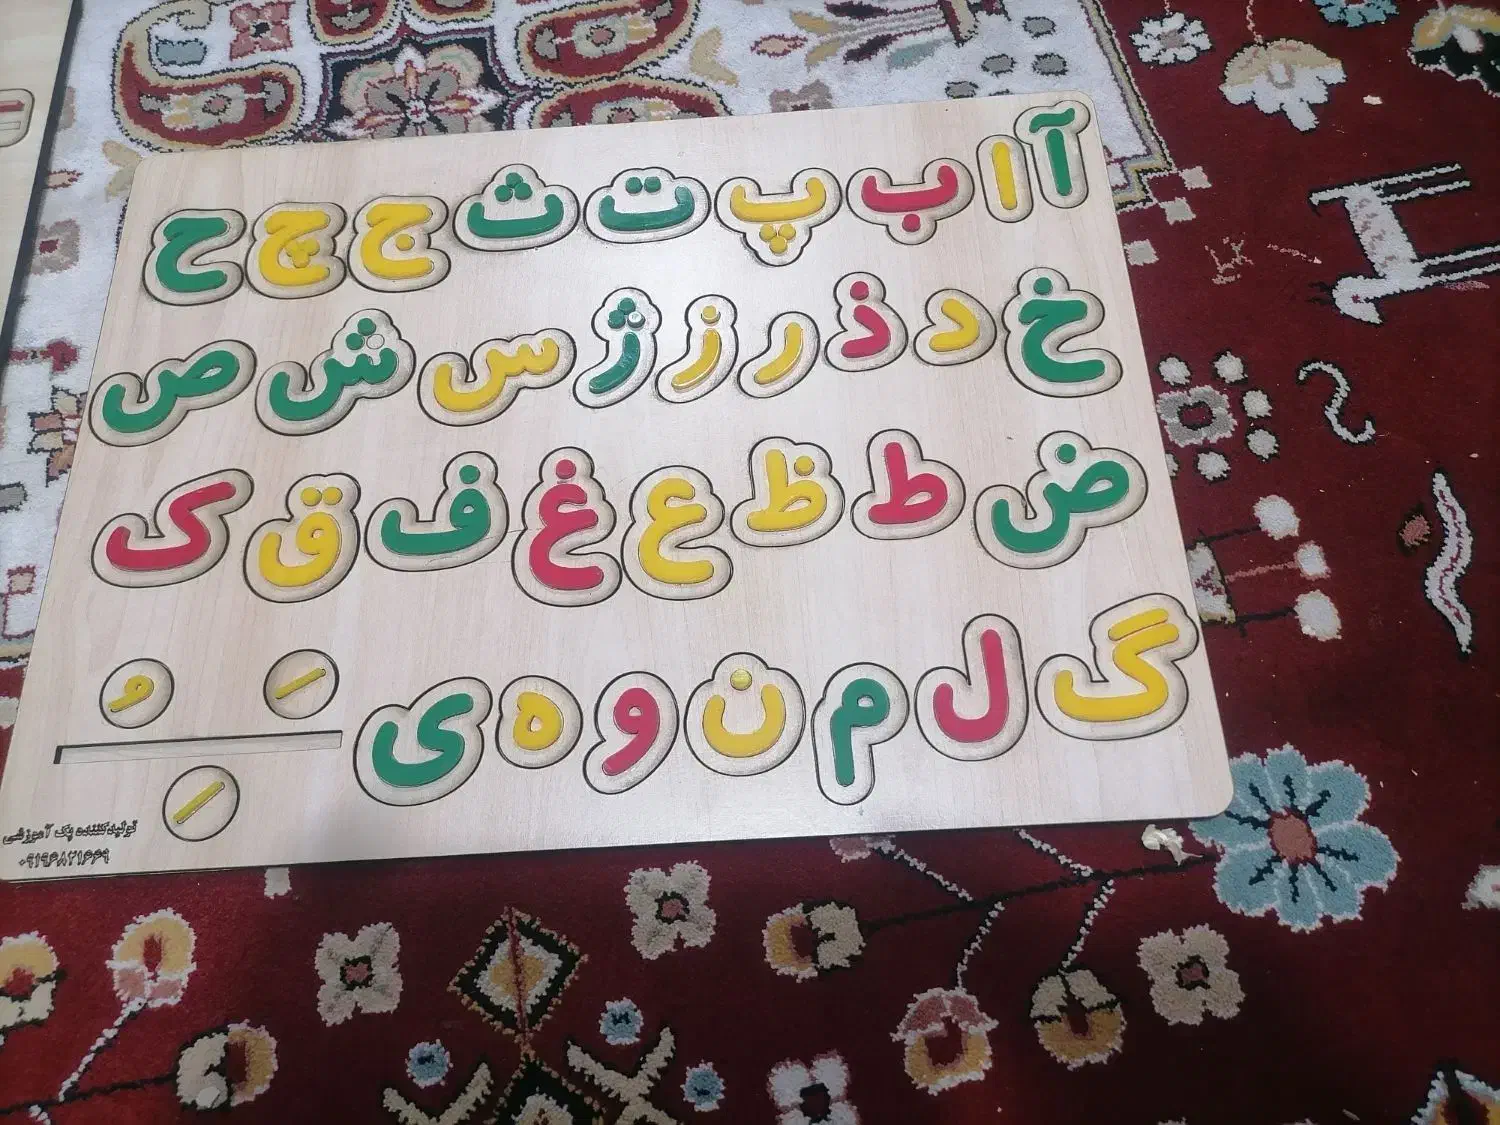 آ ا ب پ ت ث ج چ ح
خ د ذ ر ز ژ س ش ص
ض ط ظ ع غ ف ق ک
گ ل م ن و ه ی
َ ُ
ِ
تولیدکننده پک آموزشی
۰۹۱۹۶۸۲۱۶۶۹